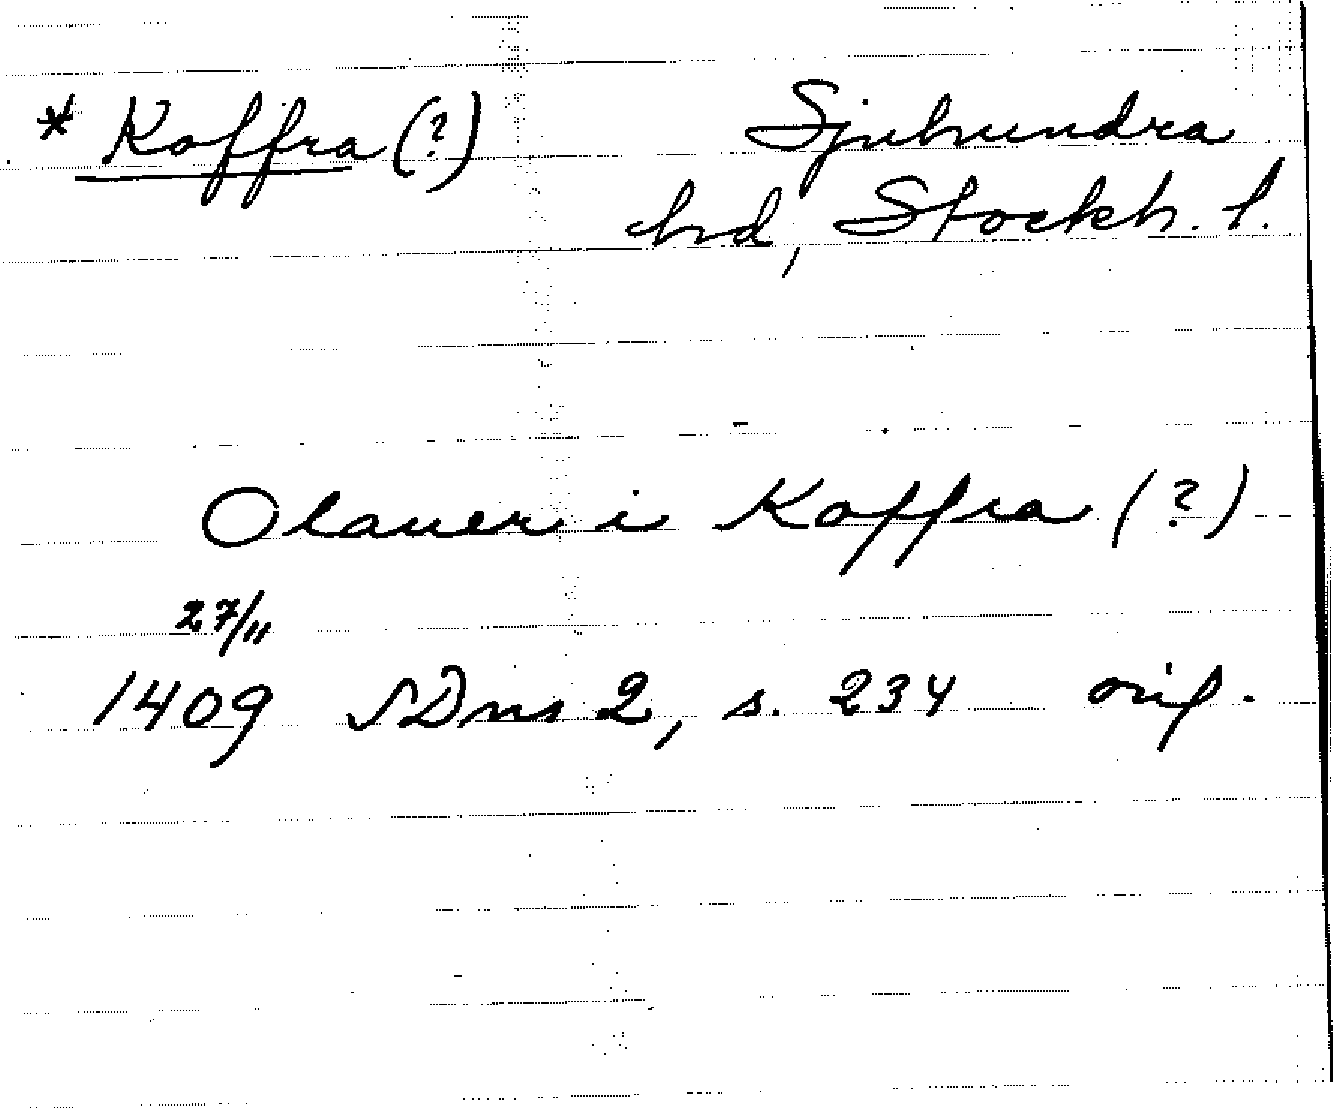 * Koffra (?) Sjuhundra
hrd, Stockh. l.
Olauer i Koffra (?)
27/11
1409 SDns 2, s. 234 orig.